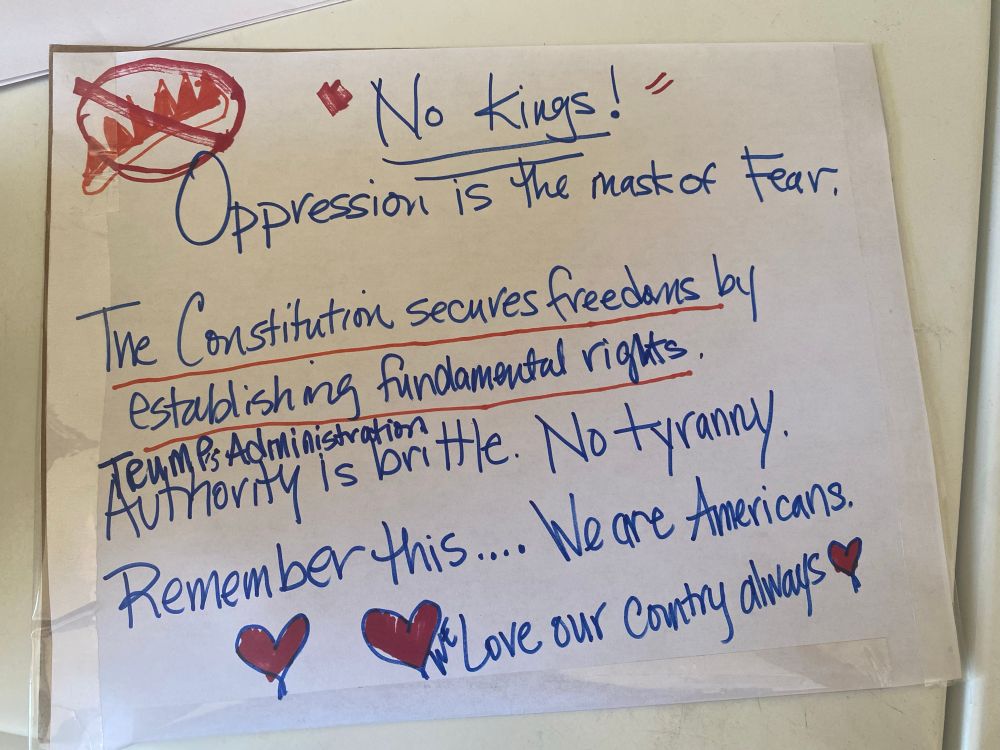 "No Kings!"
Oppression is the mask of Fear.
The Constitution secures freedoms by
establishing fundamental rights.
Trump's Administration
Authority is brittle. No tyranny.
Remember this.... We are Americans.
We Love our Country always